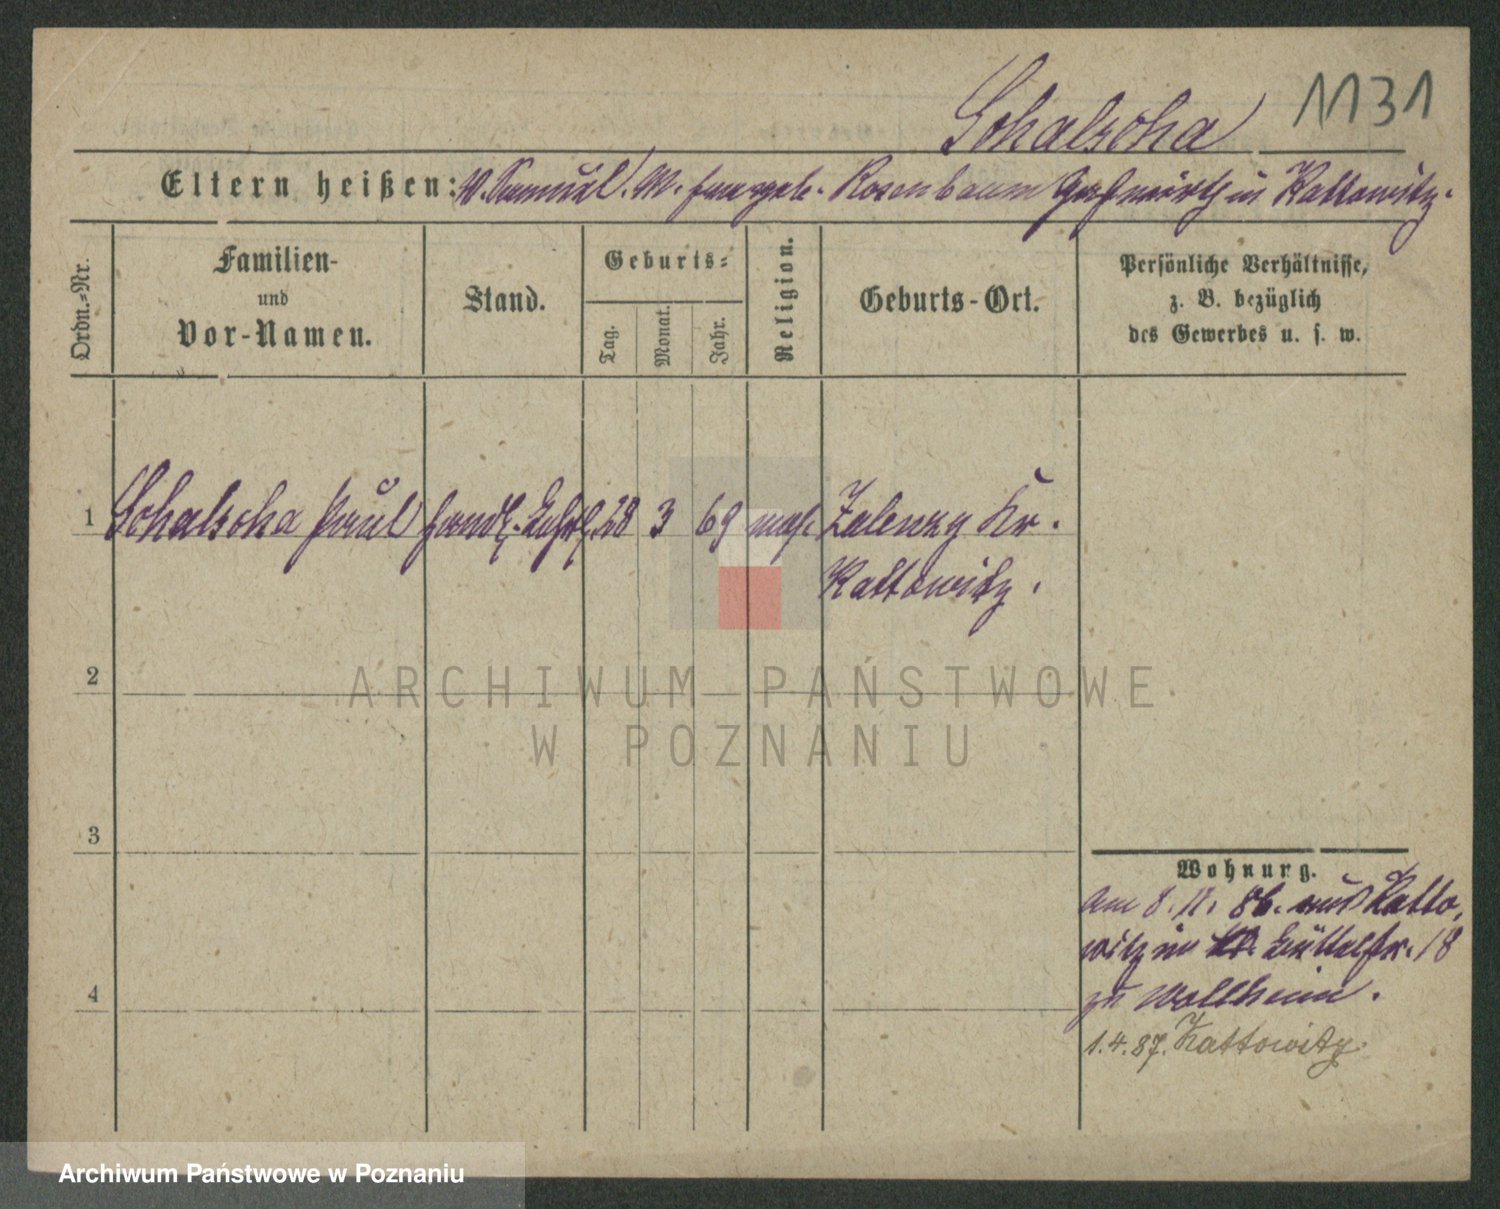 Schalscha 1131
Eltern heißen: V. Samuel. M. geb. Rosenbaum Gastwirth in Kattowitz.
Ordn.-Nr.
Familien-
und
Vor-Namen.
Stand.
Geburts-
Tag.
Monat.
Jahr.
Religion.
Geburts-Ort.
Persönliche Verhältnisse,
z. B. bezüglich
des Gewerbes u. s. w.
1 Schalscha Paul Handl. Lehrl. 28 3 69 mos. Zalenze Kr.
Kattowitz.
2
3
4
Wohnung.
Am 8. 11. 86. aus Katto,
witz in Büttelstr. 18
zu Wollheim.
1.4.87. Kattowitz.
ARCHIWUM PAŃSTWOWE
W POZNANIU
Archiwum Państwowe w Poznaniu